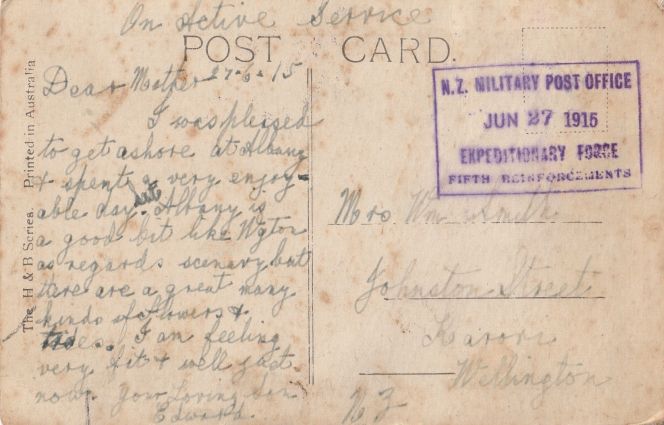 On Active Service
POST CARD.
The H & B Series. Printed in Australia
Dear Mother 27-6-15
I was pleased
to get ashore at Albany
& spent a very enjoy-
able day. Albany is
a good bit like Wgton
as regards scenary but
there are a great many
kinds of flowers &
trees. I am feeling
very fit & well just
now. Your Loving Son
Edward.
N.Z. MILITARY POST OFFICE
JUN 27 1915
EXPEDITIONARY FORCE
FIFTH REINFORCEMENTS
Mrs Wm Smith
Johnston Street
Karori
Wellington
NZ